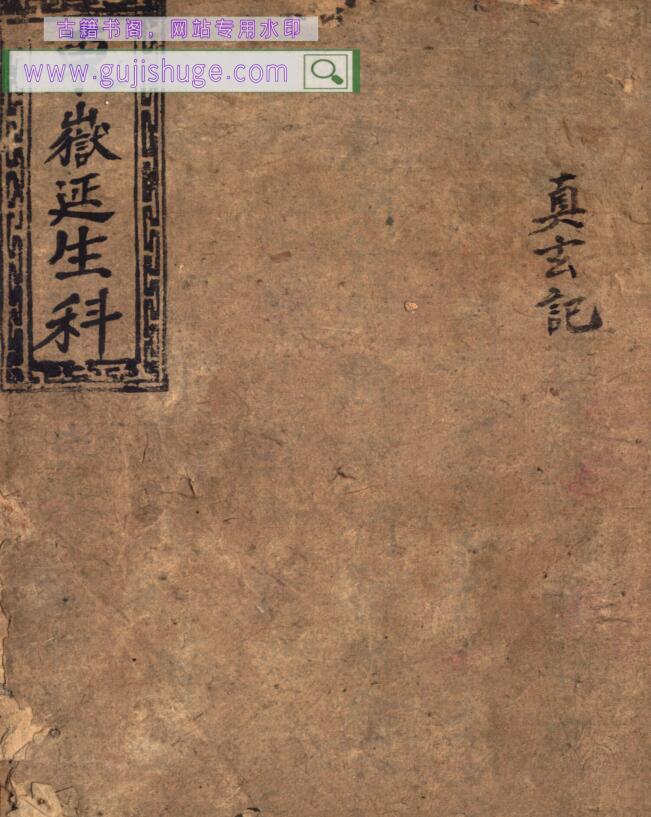 古籍书阁，网站专用水印
www.gujishuge.com
嶽延生科
真玄記